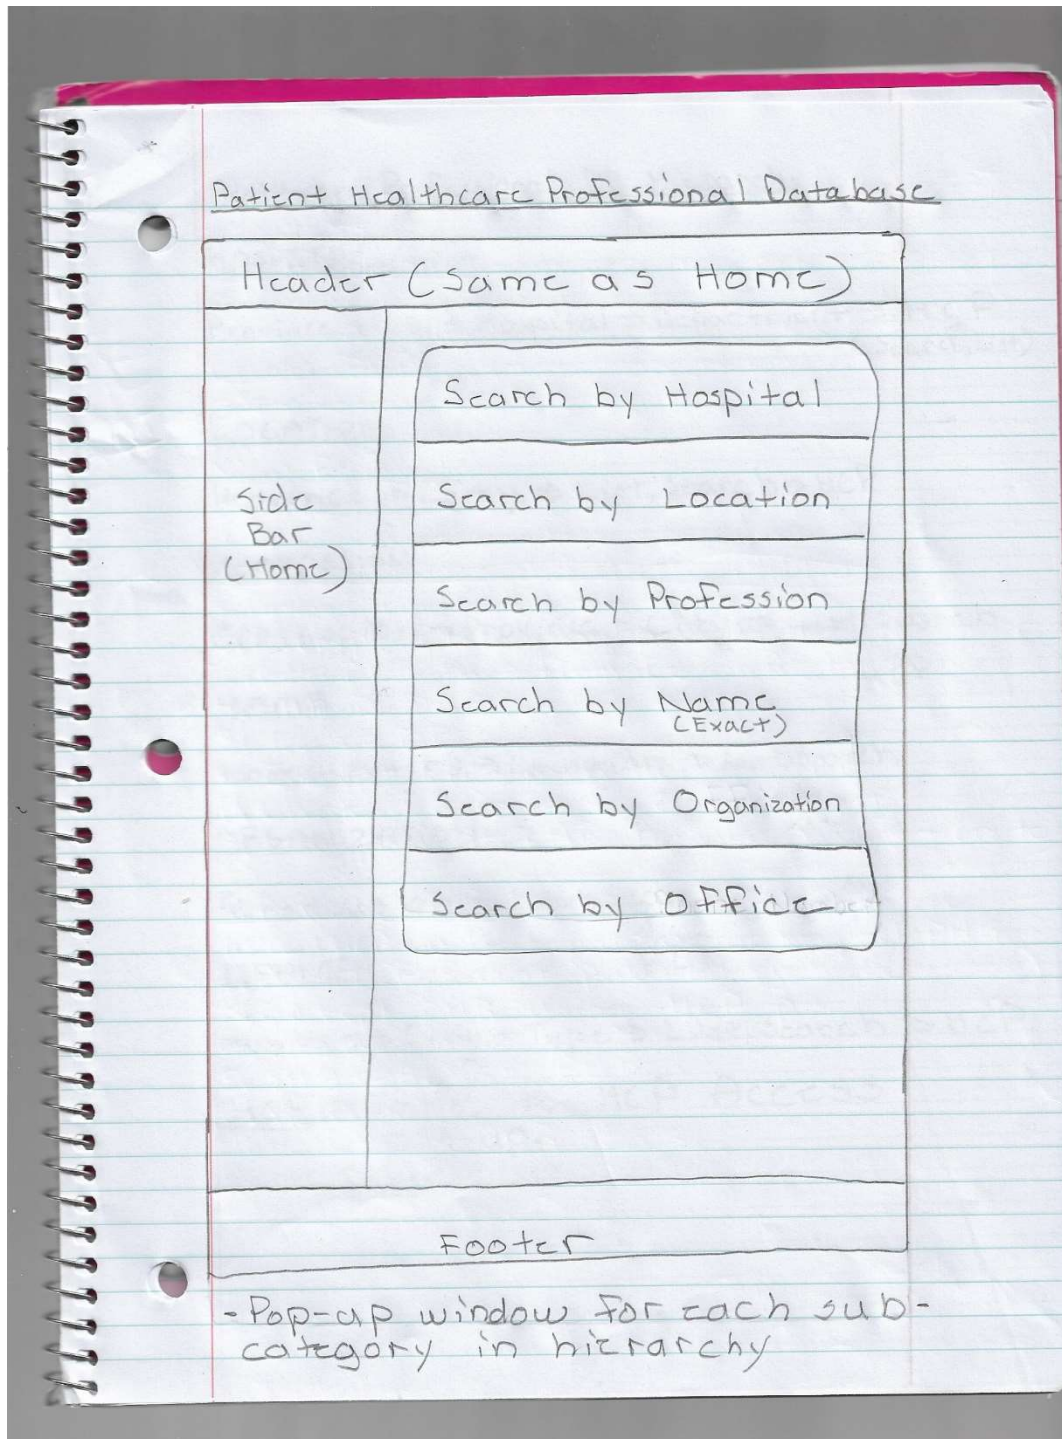 Patient Healthcare Professional Database
Header (Same as Home)
Search by Hospital
Search by Location
Side
Bar
(Home)
Search by Profession
Search by Name
(Exact)
Search by Organization
Search by Office
Footer
-Pop-up window for each sub-
category in hierarchy